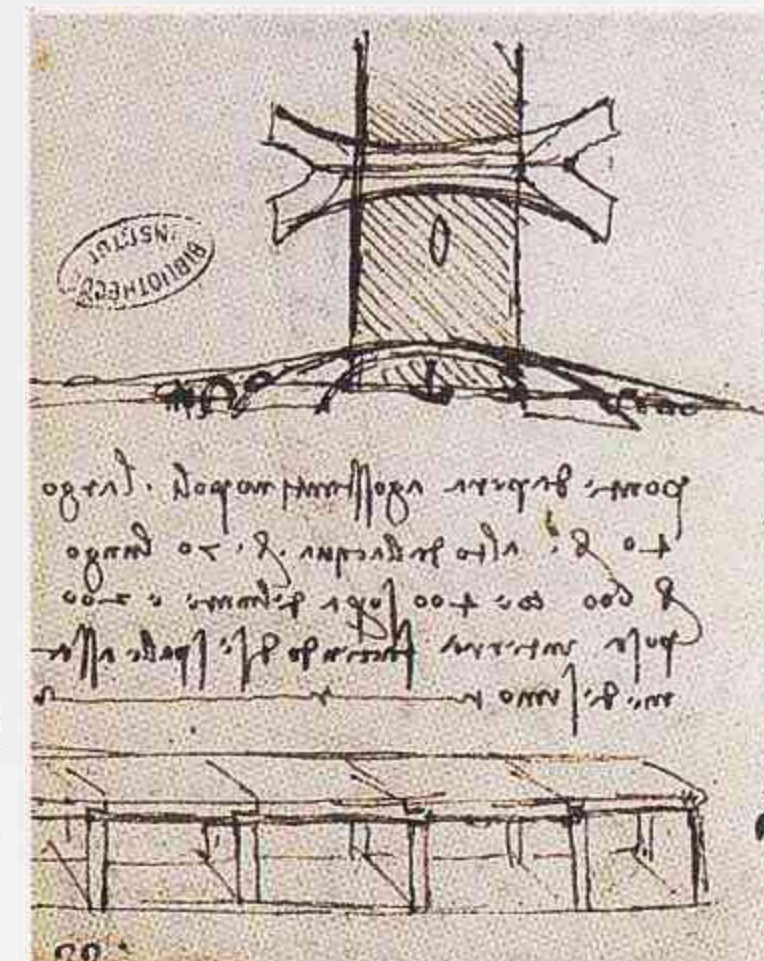 INSTITUT
BIBLIOTHEC
ponte da pera a gosstantinopoli . largo
40 b alto dallacqua b . 70 lungo
b 600 coe 400 sopra del mare e 200
posa in terra faciendo di se spalle asse
medesimo